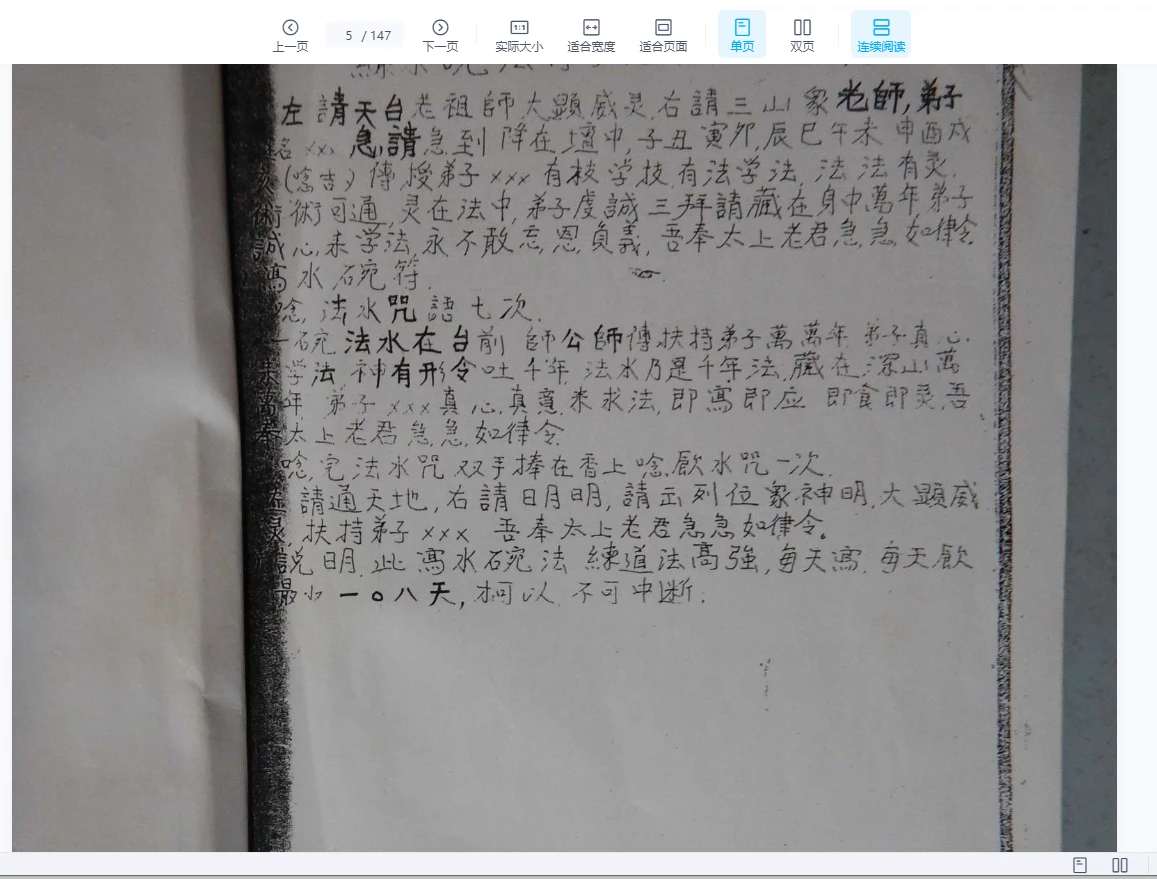 上一页 5 / 147 下一页 实际大小 适合宽度 适合页面 单页 双页 连续阅读
左請天台老祖師大顯威灵,右請三山眾老師,弟子
名xx,急請急到降在壇中,子丑寅卯,辰巳午未申酉戍
亥(唸吉)傳授弟子xxx有枝学技,有法学法,法法有灵,
術術可通,灵在法中,弟子虔誠三拜請藏在身中萬年,弟子
誠心,来学法,永不敢忘恩負義,吾奉太上老君急急如律令
寫水碗符.
唸,法水咒語七次.
一碗法水在台前 師公師傅扶持弟子萬萬年 弟子真心
来学法 神有形令吐千年,法水乃是千年法,藏在深山萬
萬年,弟子xxx真心真意来求法,即寫即应 即食即灵,吾
奉太上老君急急如律令
唸完法水咒双手捧在香上唸飲水咒一次.
請通天地,右請日月明,請出列位眾神明,大顯威
灵,扶持弟子xxx 吾奉太上老君急急如律令。
說明.此寫水碗法 練道法高強,每天寫.每天飲
最少一〇八天,才可以.不可中断.